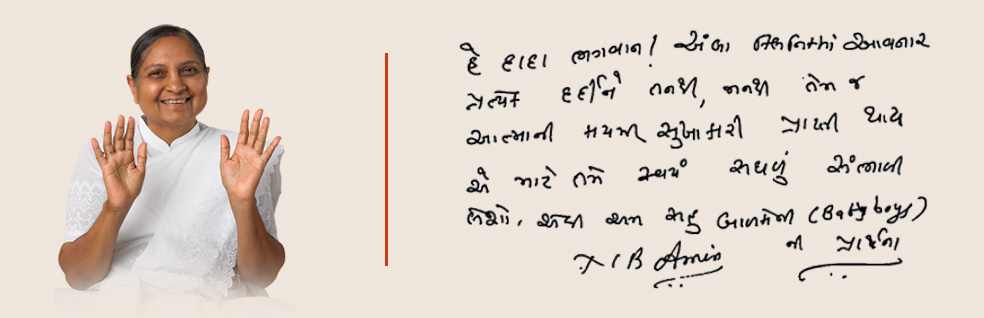 હે દાદા ભગવાન! અંબા ક્લિનિકમાં આવનાર
પ્રત્યેક દર્દીને તનથી, મનથી તેમ જ
આત્માની પરમ સુખાકારી પ્રાપ્તી થાય
એ માટે તમે સ્વયં સઘળું સંભાળી
લેશો. સર્વ બાળકોની (Baby boys)
B Amin ની પ્રાર્થના